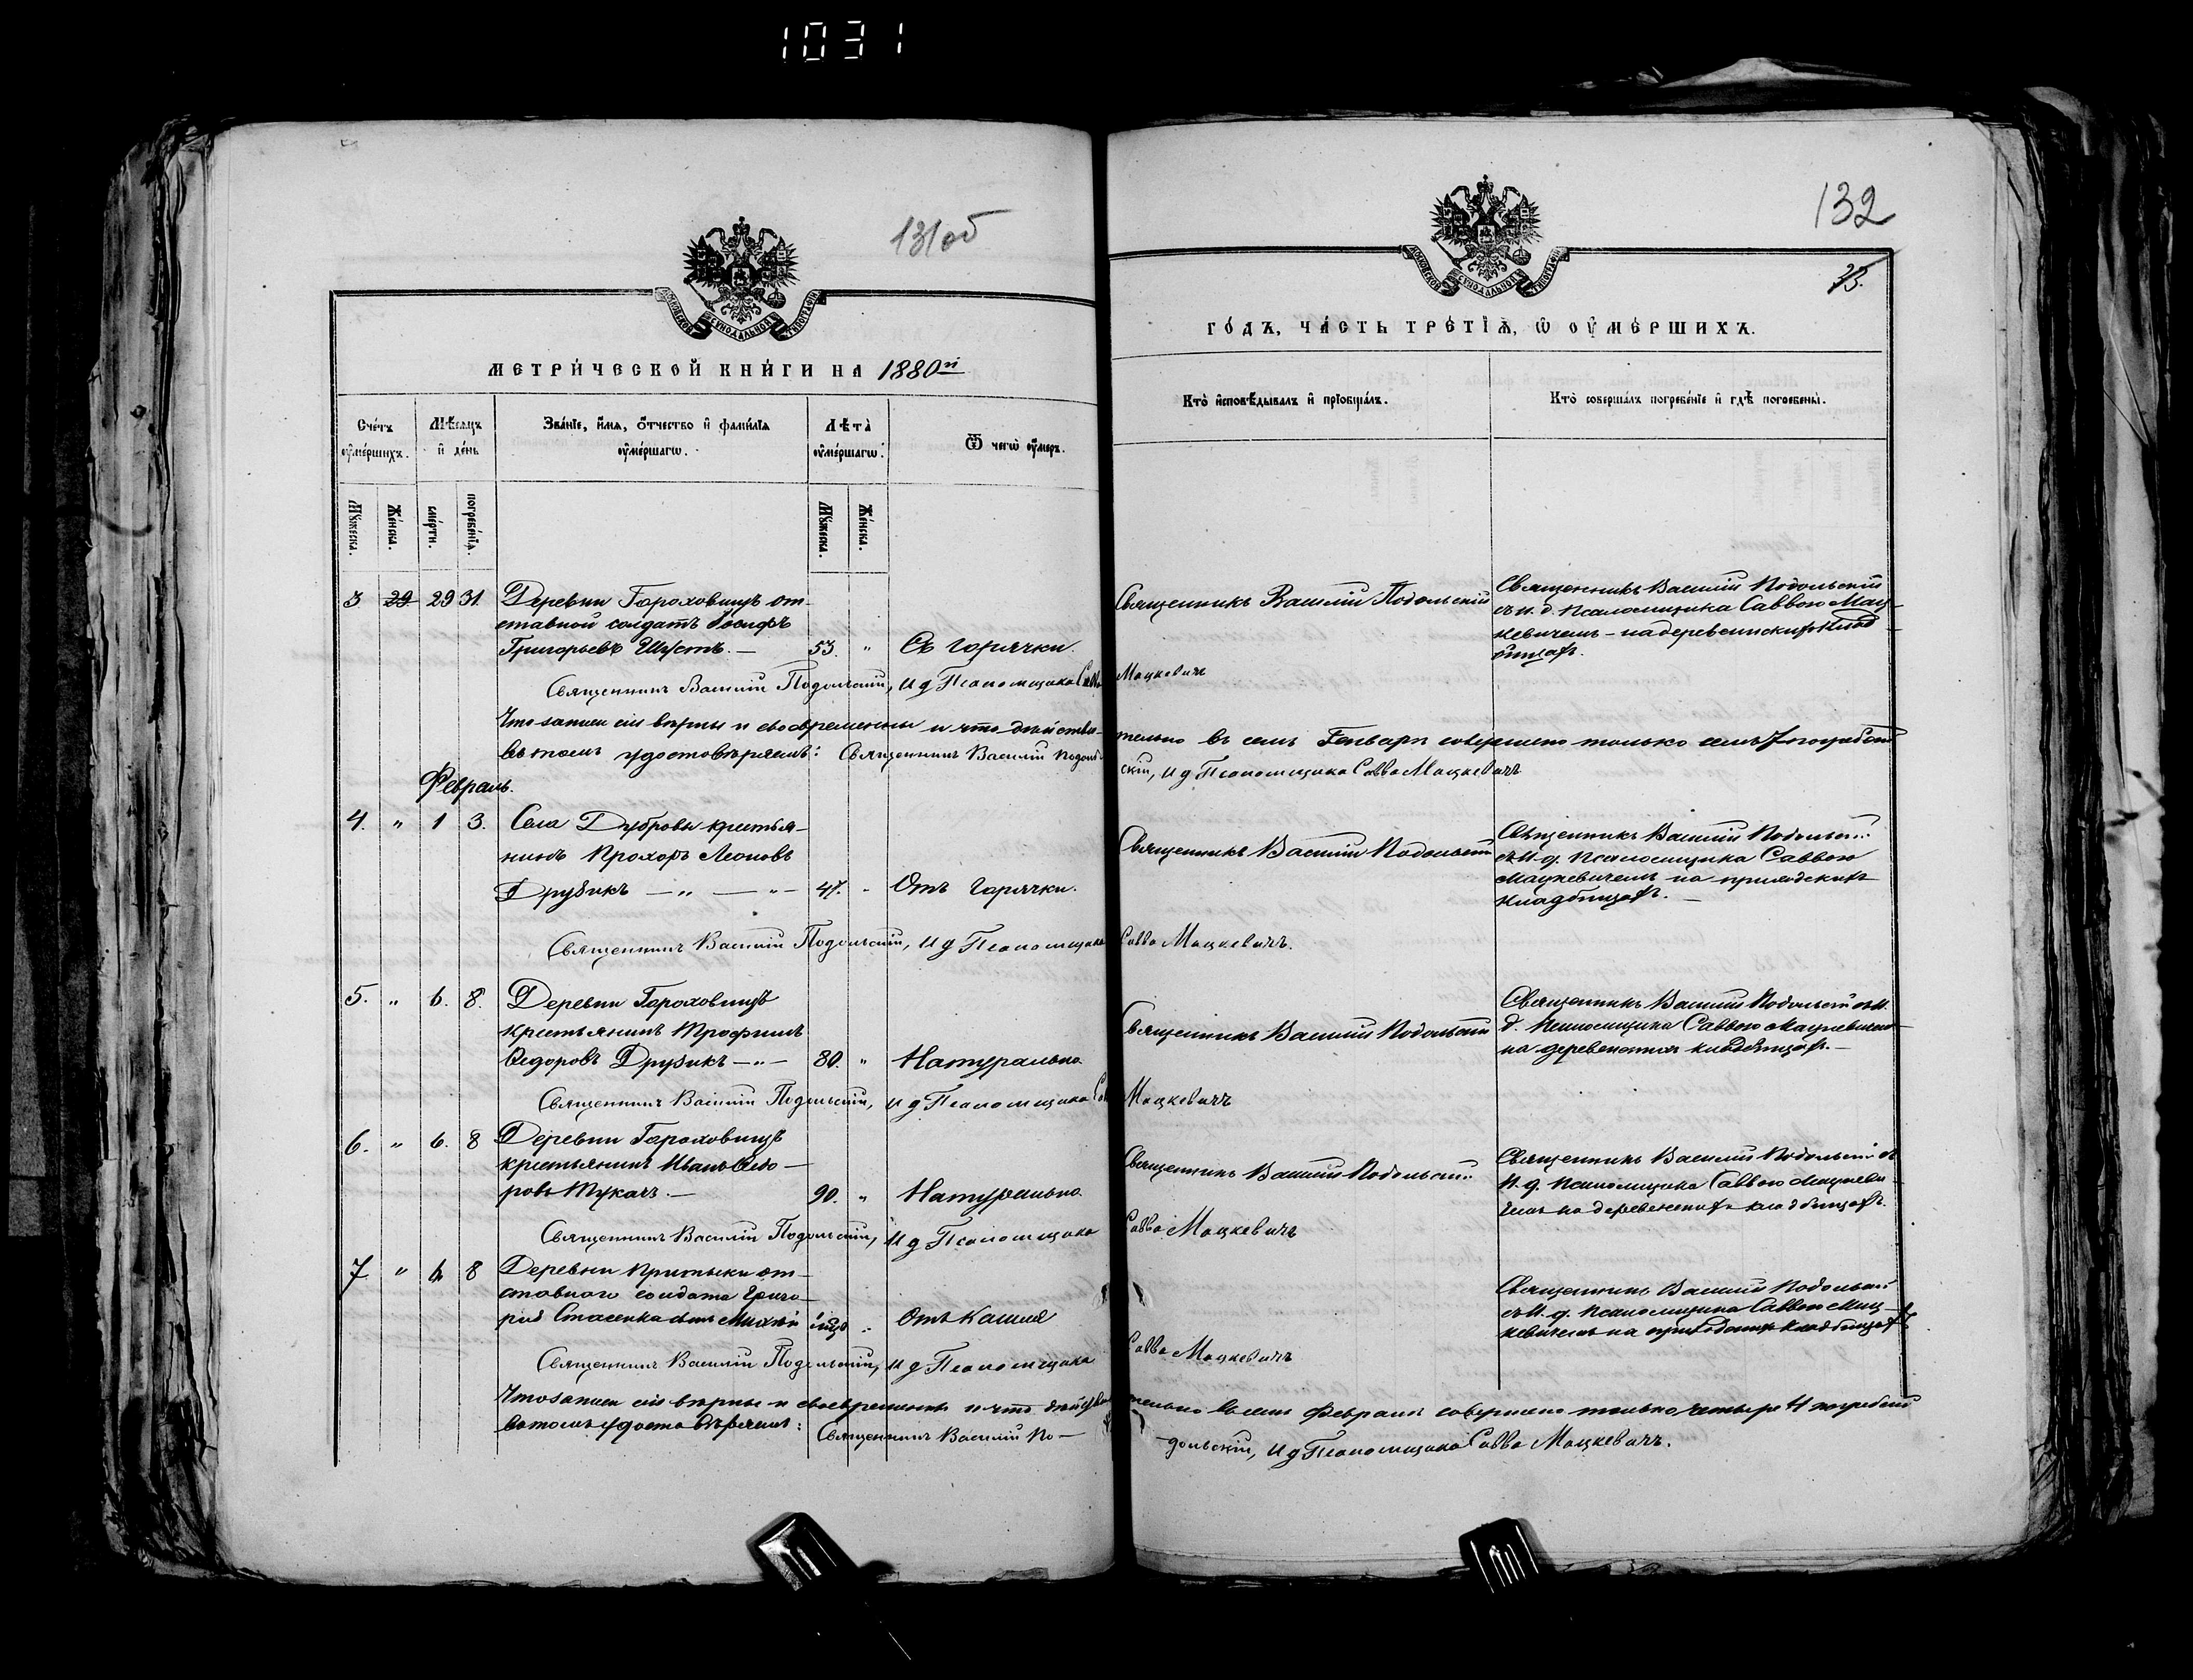 1031
131об
132
33.
МОСКОВСКОЙ СУНОДАЛЬНОЙ ТИПОГРАФІИ
МОСКОВСКОЙ СУНОДАЛЬНОЙ ТИПОГРАФІИ
МЕТРИ́ЧЕСКОЙ КНИ́ГИ НА 1880й
ГО́ДЪ, ЧА́СТЬ ТРЕ́ТІѦ, Ѡ ОУМЕ́РШИХЪ.
Сче́тъ оумершихъ.
Мѣсѧцъ и де́нь
Зва́нїе, и́мѧ, о́тчество и фами́лїѧ оуме́ршагѡ.
Лѣта̀ оуме́ршагѡ.
Ѿ чегѡ̀ оу́меръ.
Кто̀ исповѣ́дывалъ и прїобща́лъ.
Кто̀ соверша́лъ погребе́нїе и гдѣ̀ погребены̀.
Мꙋжеска.
Же́нска.
сме́рти.
погребе́нїѧ.
Мꙋжеска.
Же́нска.
3 29 29 31. Деревни Гороховищъ от-
ставной солдатъ Іосифъ
Григорьевъ Шустъ. — 53. " Съ горячки.
Священникъ Василій Подольскій
Священникъ Василій Подольскій
съ и. д. псаломщика Саввою Мац-
кевичемъ – на деревенскихъ клад-
бищахъ.
Священникъ Василій Подольскій, и д Псаломщика Савва Мацкевичъ
Что записи сіи вѣрны и своевременны и что дѣйстви- тельно въ семъ Генварѣ совершено только семь 7 погребеній
въ томъ удостовѣряемъ: Священникъ Василій Подоль- скій, и д Псаломщика Савва Мацкевичъ
Февраль.
4. " 1 3. Села Дубровы крестья-
нинъ Прохоръ Леоновъ
Друзикъ — " — " — 47. " Отъ горячки.
Священникъ Василій Подольскій
Священникъ Василій Подольскій
съ и. д. псаломщика Саввою
Мацкевичемъ на приходскихъ
кладбищахъ. —
Священникъ Василій Подольскій, и д Псаломщика Савва Мацкевичъ.
5. " 6. 8. Деревни Гороховищъ
крестьянинъ Трофимъ
Ѳедоровъ Друзикъ — " — 80. " Натурально
Священникъ Василій Подольскій
Священникъ Василій Подольскій съ и.
д. псаломщика Саввою Мацкевичемъ
на деревенскихъ кладбищахъ. —
Священникъ Василій Подольскій, и д Псаломщика Савва Мацкевичъ
6. " 6. 8 Деревни Гороховищъ
крестьянинъ Иванъ Ѳедо-
ровъ Тукачъ. — 90. " Натурально
Священникъ Василій Подольскій
Священникъ Василій Подольскій съ
и. д. псаломщика Саввою Мацкеви-
чемъ на деревенскихъ кладбищахъ.
Священникъ Василій Подольскій, и д Псаломщика Савва Мацкевичъ
7 " 8 Деревни Притыки от-
ставного солдата Григо-
рія Стасенка сынъ " Отъ Кашля
Священникъ Василій Подольскій
съ и. д. псаломщика Саввою Мац-
кевичемъ на приходскихъ кладбищахъ
Священникъ Василій Подольскій, и д Псаломщика Савва Мацкевичъ
Что записи сіи вѣрны и своевременны и что дѣйстви- тельно въ семъ Февралѣ совершено только четыре 4 погребеній
въ томъ удостовѣряемъ: Священникъ Василій По- дольскій, и д Псаломщика Савва Мацкевичъ.